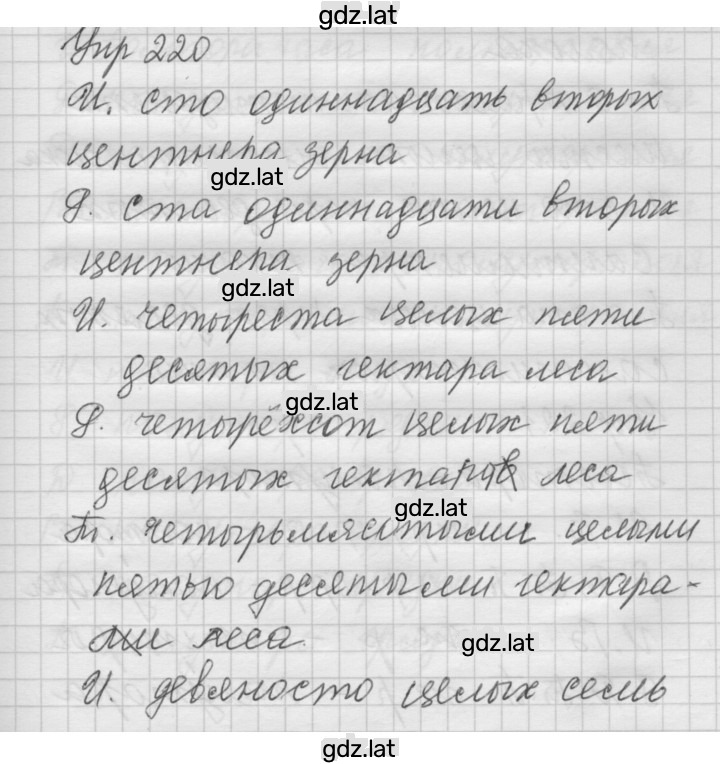 gdz.lat
Упр 220
И. сто одиннадцать вторых
центнера зерна
gdz.lat
Р. ста одиннадцати вторых
центнера зерна
gdz.lat
И. четыреста целых пяти
десятых гектара леса
gdz.lat
Р. четырёхсот целых пяти
десятых гектаров леса
gdz.lat
Т. четырьмястами целыми
пятью десятыми гектара-
ми леса.
gdz.lat
И. девяносто целых семь
gdz.lat